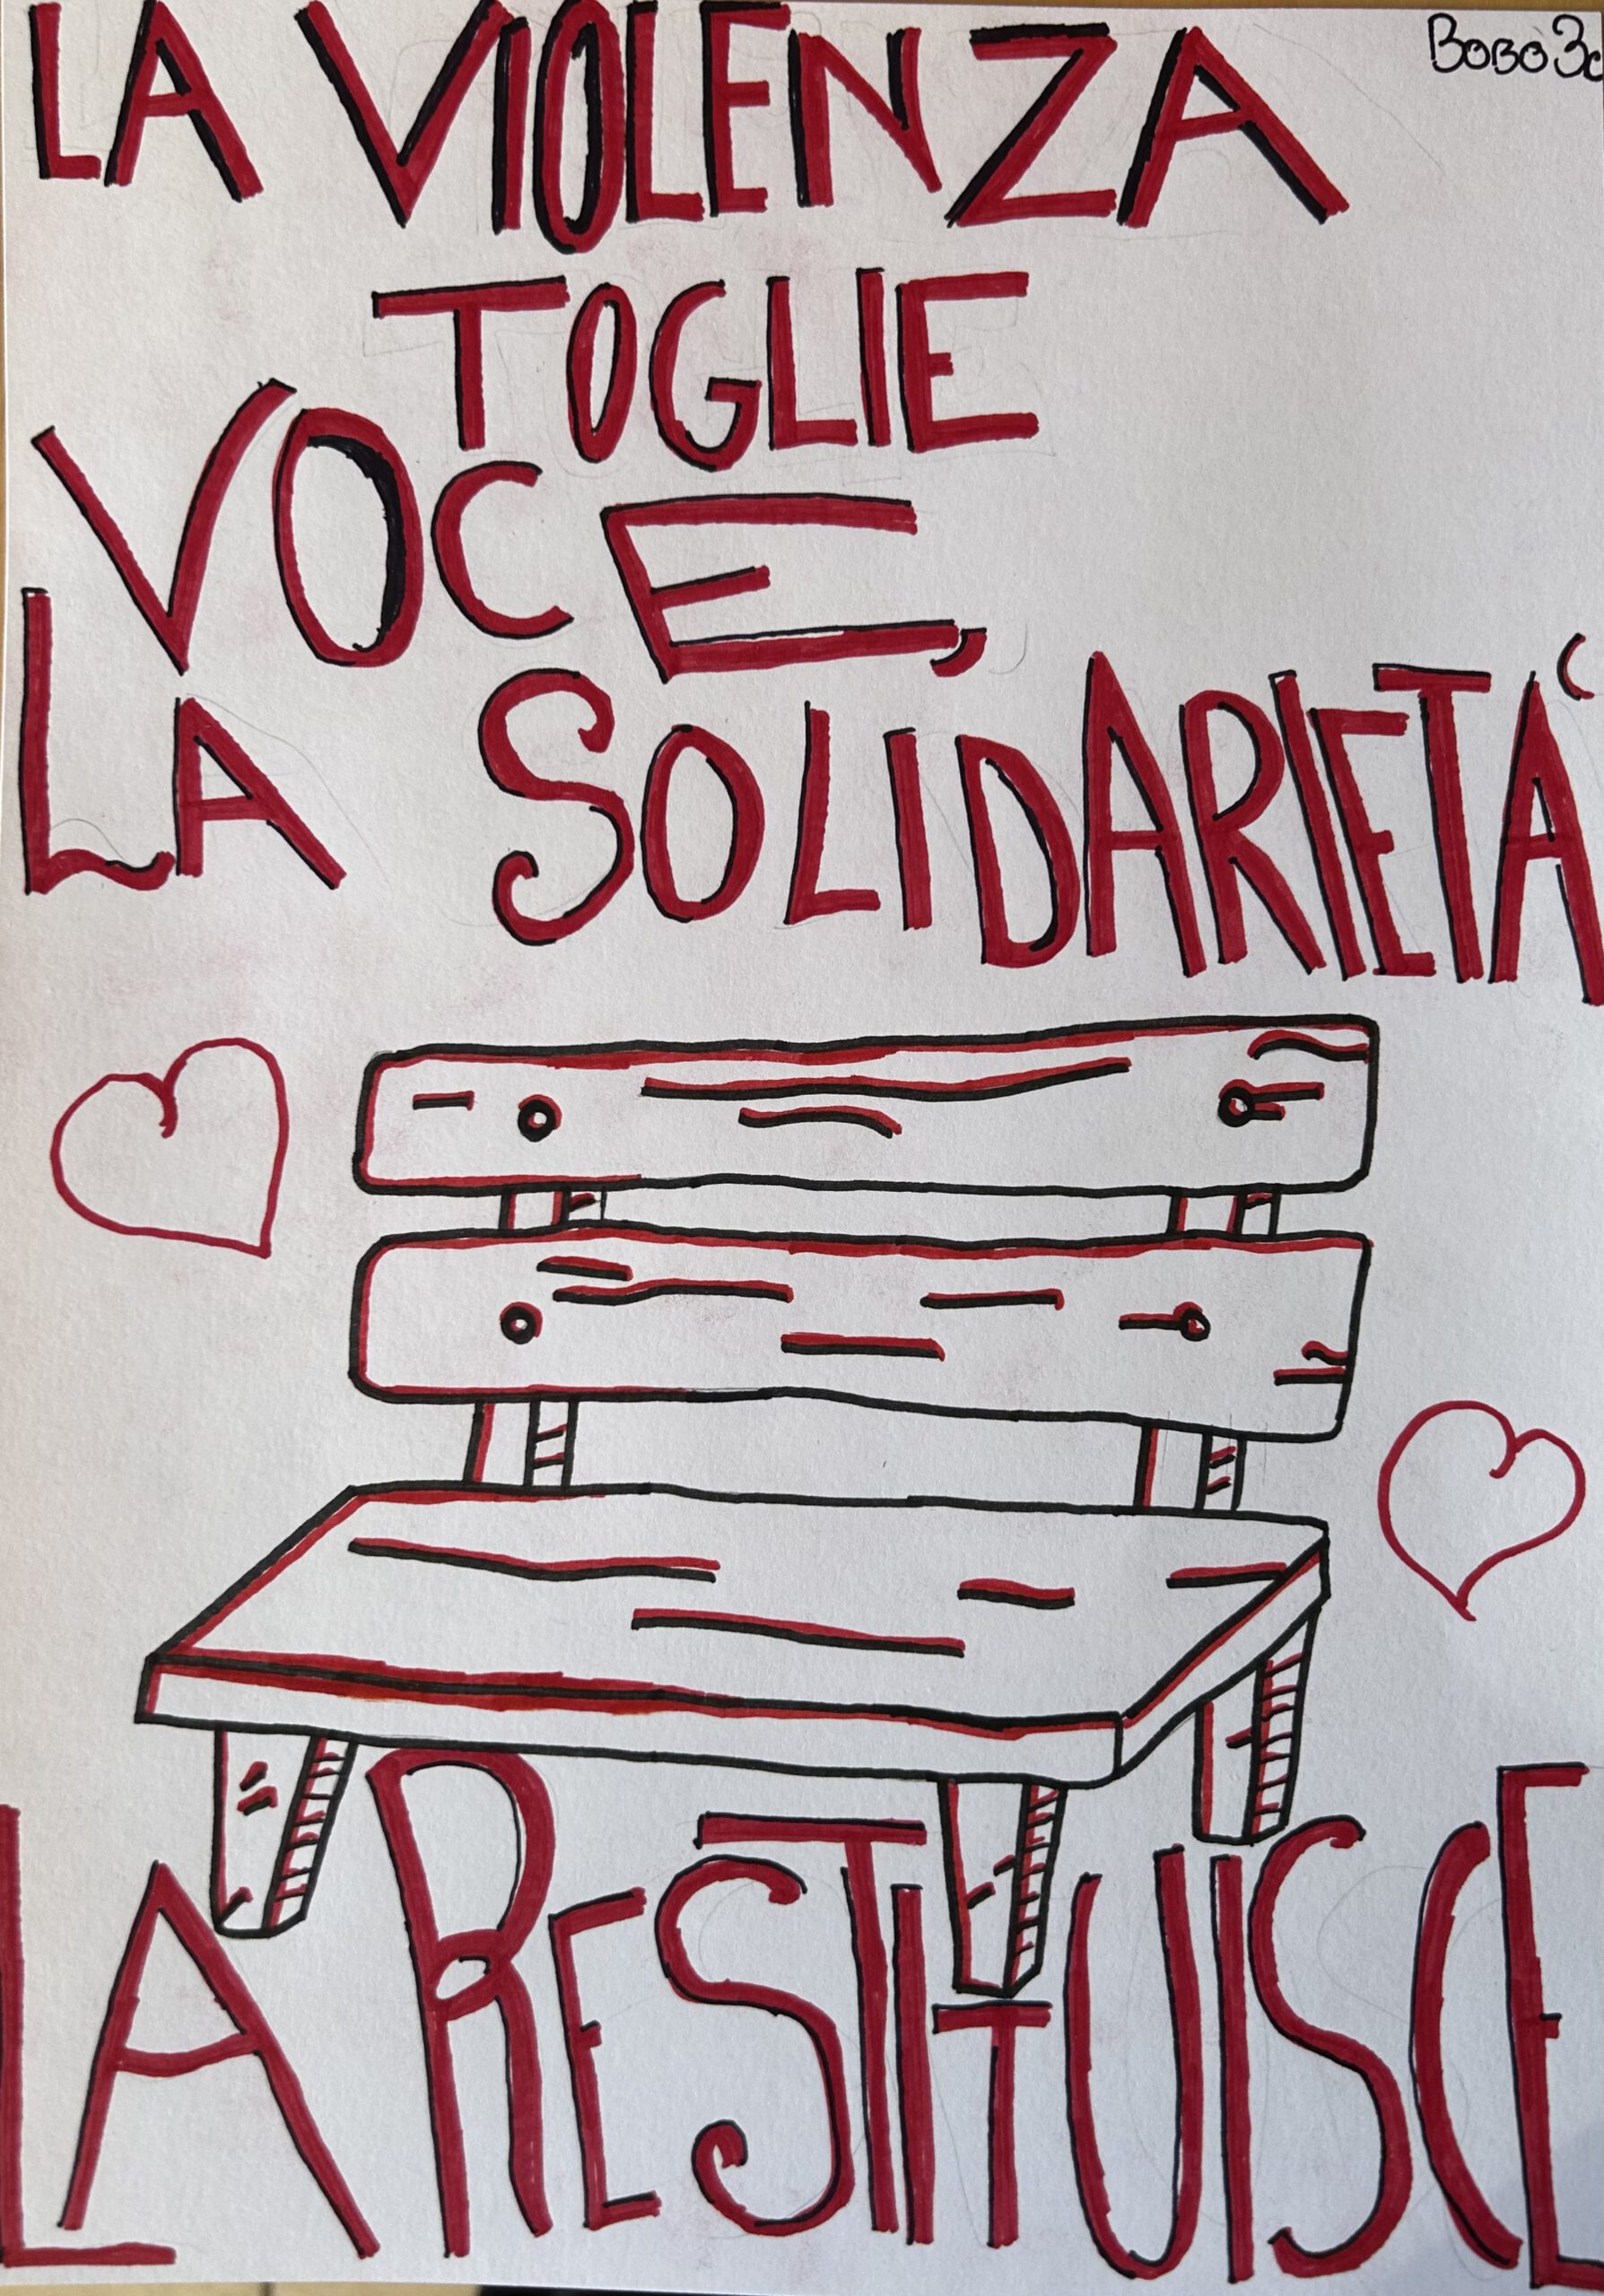 Bobo 3c
LA VIOLENZA
TOGLIE
VOCE,
LA SOLIDARIETÀ
LA RESTITUISCE